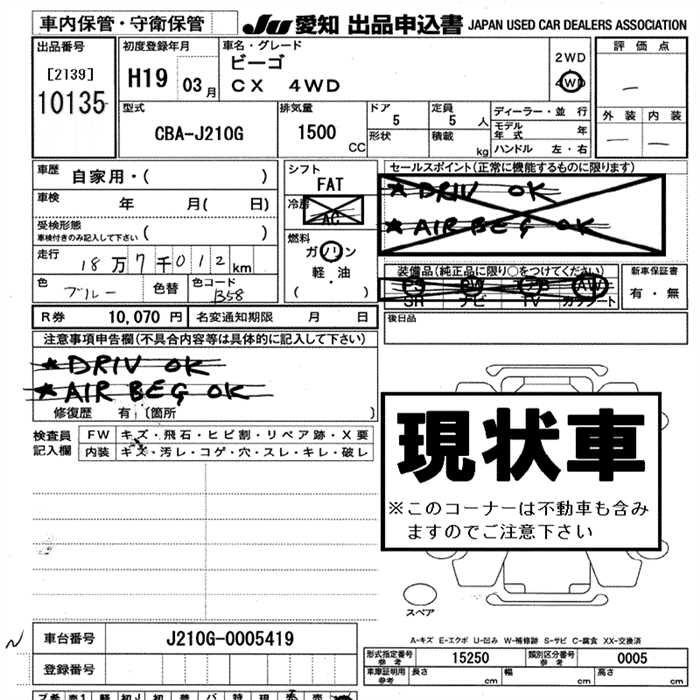 車内保管・守衛保管
JU 愛知 出品申込書 JAPAN USED CAR DEALERS ASSOCIATION
出品番号
[2139]
10135
初度登録年月
H19 03月
車名・グレード
ビーゴ
CX 4WD
2WD
4WD
評価点
―
外装 内装
― ―
型式
CBA-J210G
排気量
1500
CC
ドア
5
定員
5 人
形状
積載
kg
ディーラー・並 行
モデル年式 年
ハンドル 左・右
車歴
自家用・( )
車検
年 月( 日)
受検形態
車検付きのみ記入して下さい ( )
走行
18万7千012km
色
ブルー
色替
色コード
B58
シフト
FAT
冷房
AC
燃料
ガソリン
軽・油
( )
セールスポイント(正常に機能するものに限ります)
★DRIV OK
★AIR BEG OK
装備品(純正品に限り○をつけてください)
PS PW AB AW
SR ナビ TV カワシート
新車保証書
有・無
後日品
R券 10,070 円
名変通知期限 月 日
注意事項申告欄(不具合内容等は具体的に記入して下さい)
★DRIV OK
★AIR BEG OK
修復歴 有 (箇所 )
検査員
記入欄
FW キズ・飛石・ヒビ割・リペア跡・X要
内装 キズ・汚レ・コゲ・穴・スレ・キレ・破レ
現状車
※このコーナーは不動車も含み
ますのでご注意下さい
スペア
A-キズ E-エクボ U-凹み W-補修跡 S-サビ C-腐食 XX-交換済
車台番号
J210G-0005419
登録番号
形式指定番号
参考
15250
類別区分番号
参考
0005
車庫証明記載
参考
長さ cm
幅 cm
高さ cm